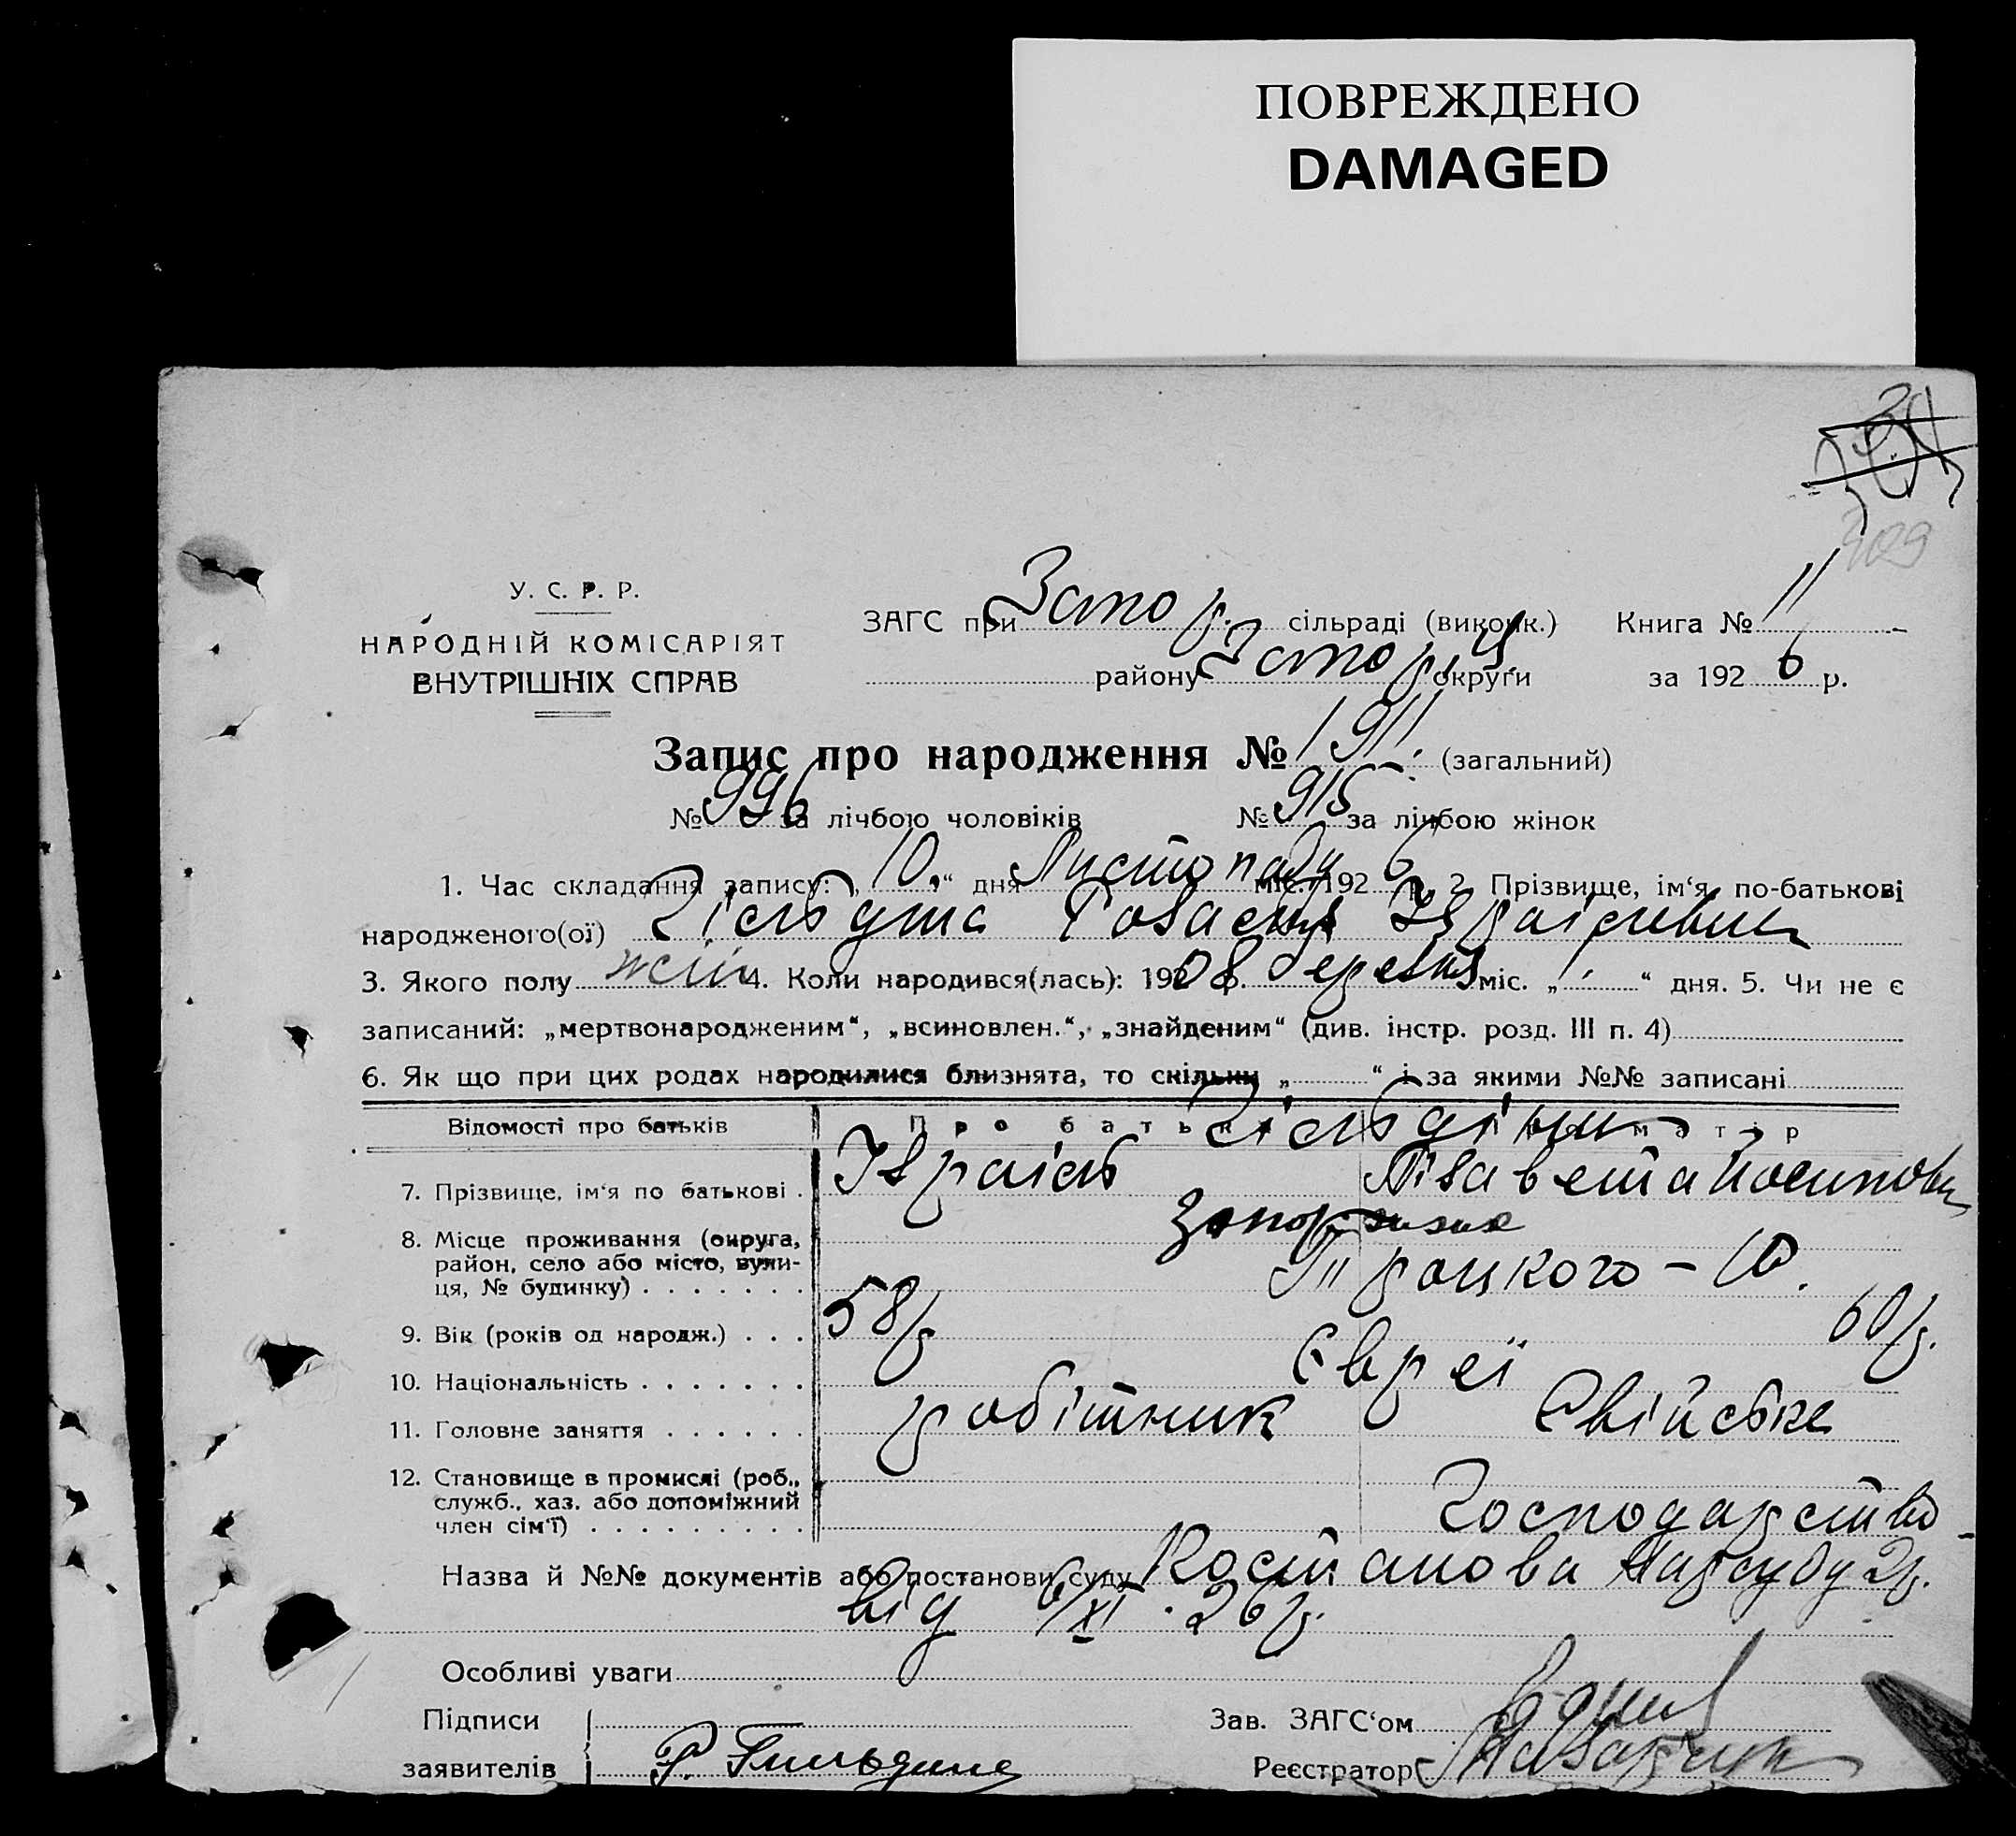 ПОВРЕЖДЕНО
DAMAGED
309
У. С. Р. Р.
НАРОДНІЙ КОМІСАРІЯТ
ВНУТРІШНІХ СПРАВ
ЗАГС при Запор. сільраді (виконк.) Книга № 11
району Запор. округи за 1926 р.
Запис про народження № 1911. (загальний)
№ 996 за лічбою чоловіків № 915 за лічбою жінок
1. Час складання запису: „10.“ дня Листопаду міс. 1926 р. 2. Прізвище, ім‘я, по-батькові
народженого(ої)
3. Якого полу жін 4. Коли народився(лась): 1908 р. березня міс. „ “ дня. 5. Чи не є
записаний: „мертвонародженим“, „всиновлен.“, „знайденим“ (див. інстр. розд. III п. 4)
6. Як що при цих родах народилися близнята, то скільки „ “ і за якими №№ записані
Відомості про батьків Про батька матір
7. Прізвище, ім‘я по батькові . Ізраіль Лізавета Йосиповн
8. Місце проживання (округа, район, село або місто, вулиця, № будинку) . . . . . . . Троцкого – 10.
9. Вік (років од народж.) . . . 58 р 60 р.
10. Національність . . . . . . . Євреї
11. Головне заняття . . . . . . робітник Свійське
12. Становище в промислі (роб., служб., хаз. або допоміжний член сім‘ї) . . . . . . . . . Господарство
Назва й №№ документів або постанови суду Постанова Нарсуду 2 р.
від 6/XI . 26 р.
Особливі уваги
Підписи Зав. ЗАГС‘ом
заявителів Р. Гильдина Реєстратор